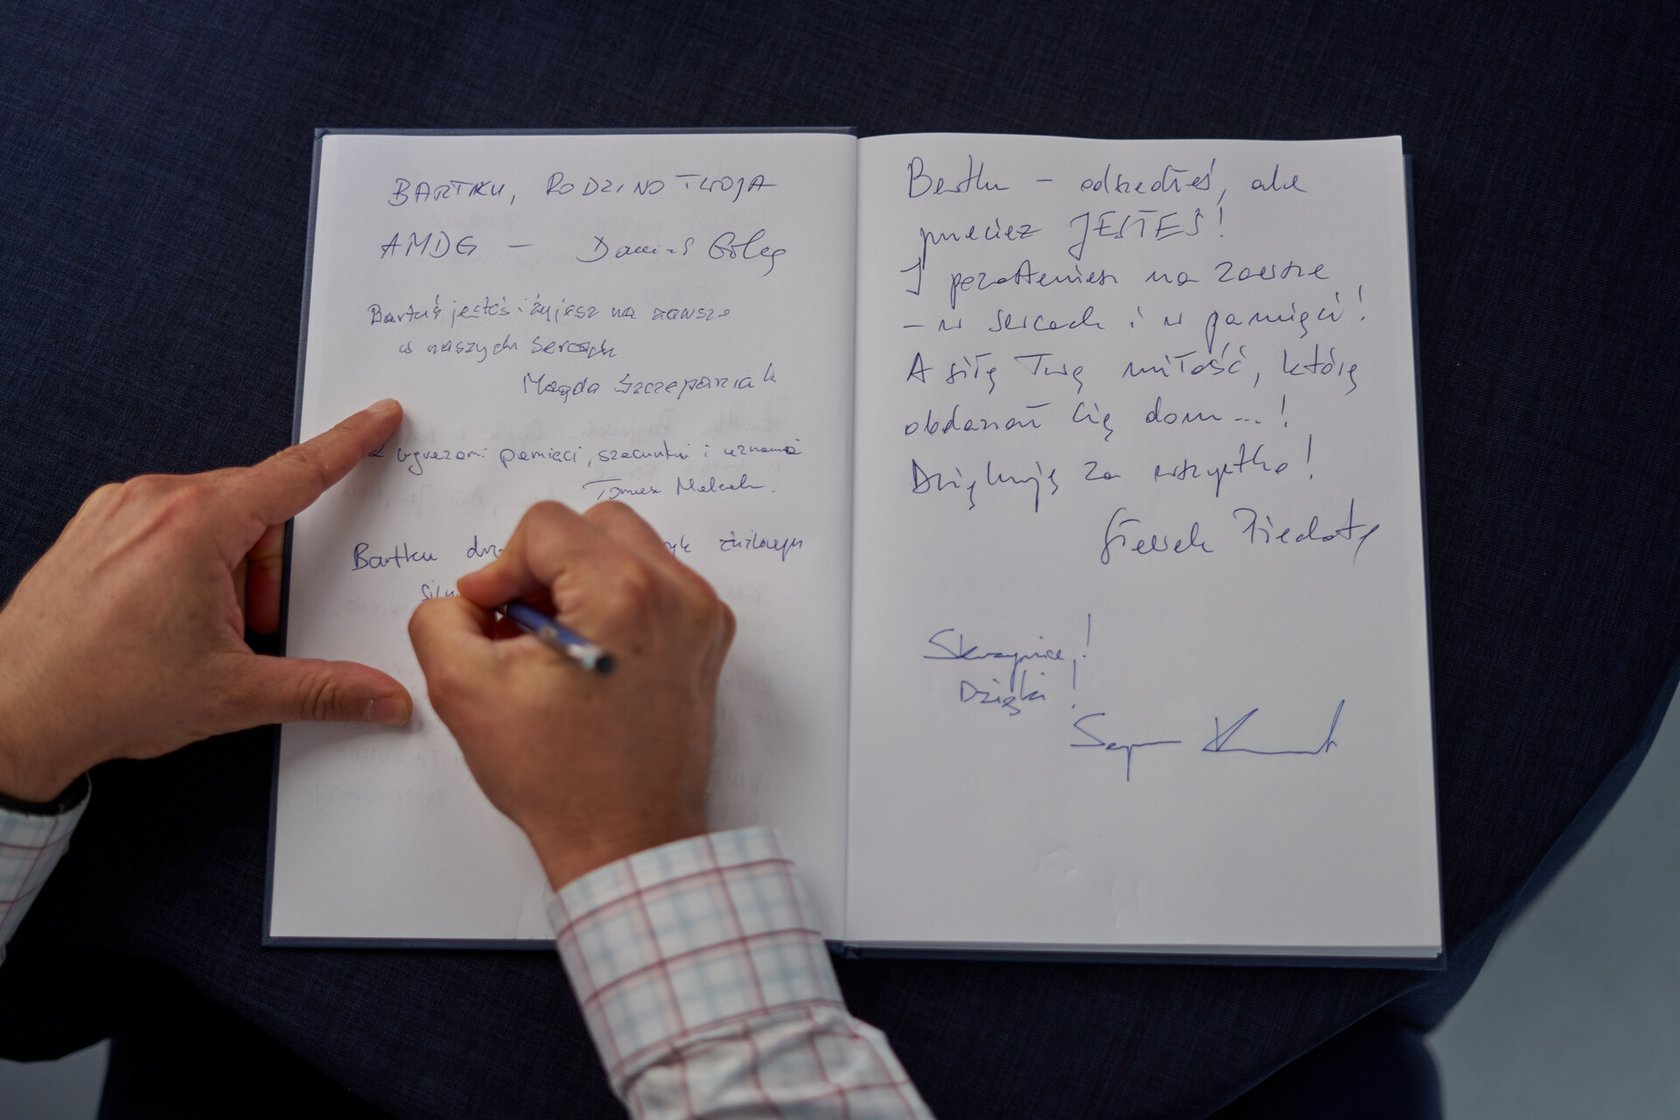 BARTKU, RODZINO TWOJA
AMDG —
Bartuś jesteś i żyjesz na zawsze
w naszych sercach
Magda Szczepaniak
wyrazami pamięci, szacunku i uznania
Tomasz
Bartku
Bartku – odszedłeś, ale
przecież JESTEŚ!
I pozostaniesz na zawsze
– w sercach i w pamięci!
A siłą Twą miłość, którą
obdarzał Cię dom...!
Dziękuję za wszystko!
Skrzynice!
Dzięki!